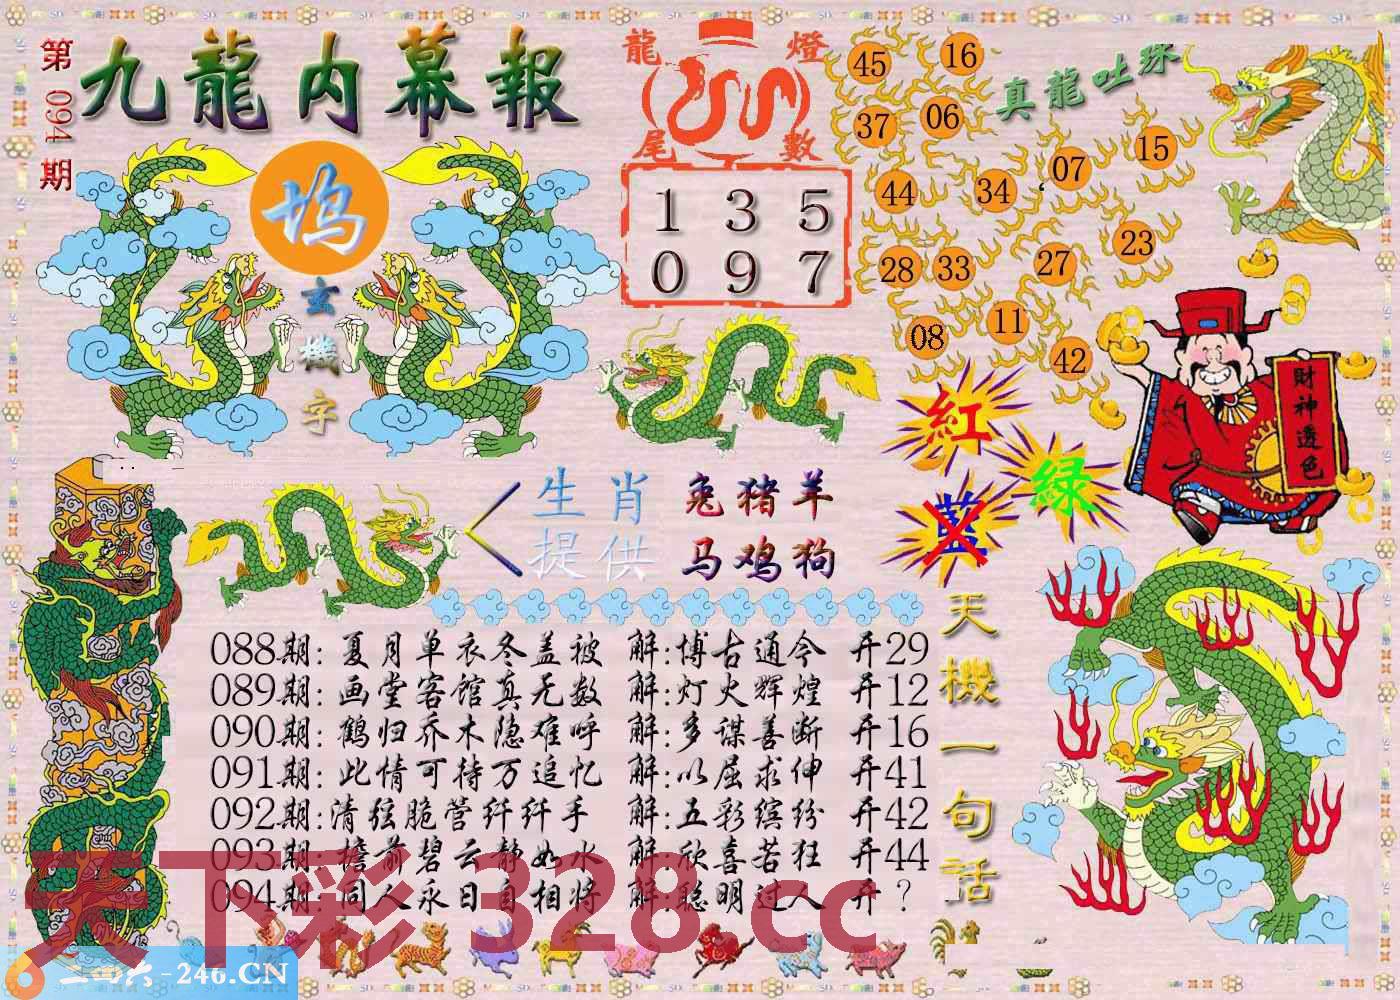 第094期
九龍内幕報
坞
玄機字
龍燈尾數
1 3 5
0 9 7
真龍吐珠
45 16
37 06
44 34 07 15
28 33 27 23
08 11 42
財神透色
紅
绿
蓝
生肖提供
兔猪羊
马鸡狗
天機一句話
088期: 夏月单衣冬盖被 解:博古通今 开29
089期: 画堂客馆真无数 解:灯火辉煌 开12
090期: 鹤归乔木隐难呼 解:多谋善断 开16
091期: 此情可待万追忆 解:以屈求伸 开41
092期: 清弦脆管纤纤手 解:五彩缤纷 开42
093期: 檐前碧云静如水 解:欣喜若狂 开44
094期: 同人永日自相将 解:聪明过人 开？
天下彩328.cc
二四六-246.CN